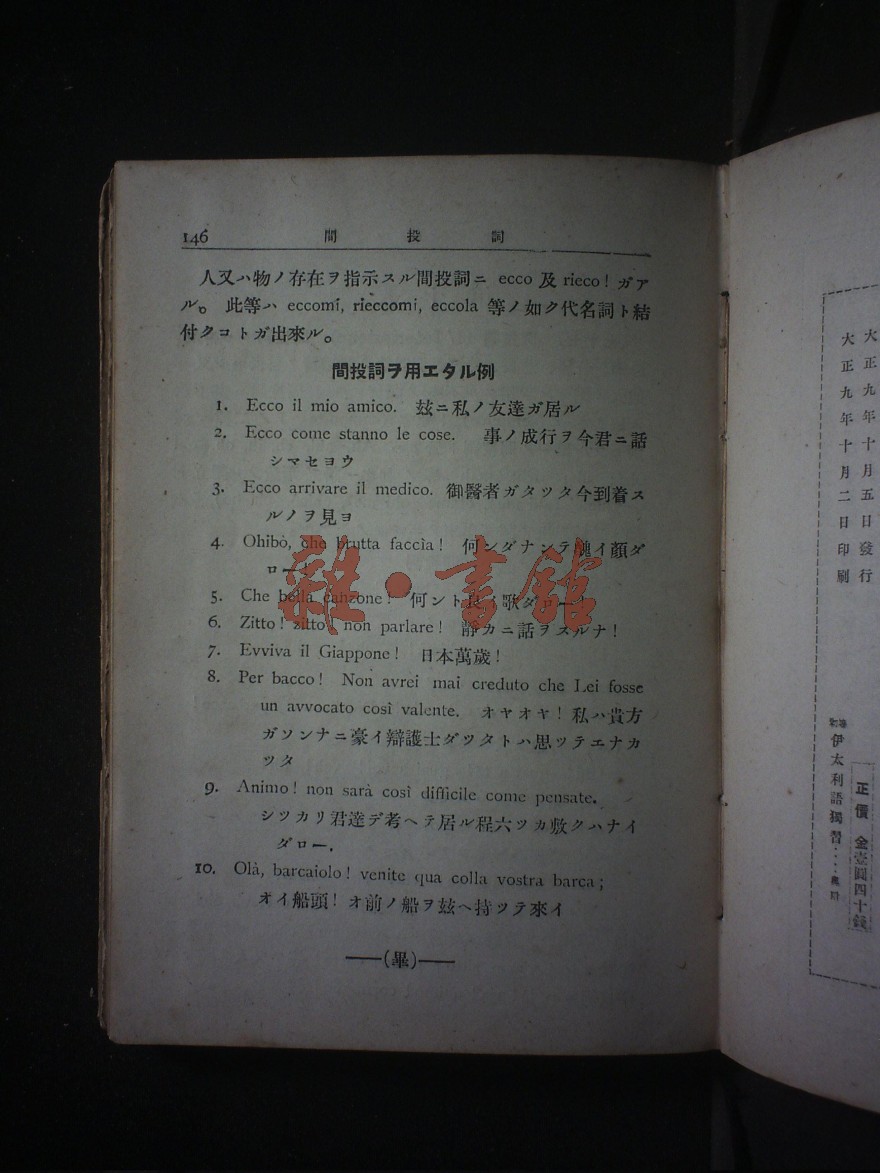 146 間投詞
人又ハ物ノ存在ヲ指示スル間投詞ニ ecco 及 rieco! ガア
ル。 此等ハ eccomi, rieccomi, eccola 等ノ如ク代名詞ト結
付クコトガ出來ル。
間投詞ヲ用エタル例
1. Ecco il mio amico. 玆ニ私ノ友達ガ居ル
2. Ecco come stanno le cose. 事ノ成行ヲ今君ニ話
シマセヨウ
3. Ecco arrivare il medico. 御醫者ガタツタ今到着ス
ルノヲ見ヨ
4. Ohibò, che brutta faccìa! 何ンダナンテ醜イ顔ダ
ロー
5. Che bella canzone! 何ント良イ歌ダロー
6. Zitto! zitto! non parlare! 靜カニ話ヲスルナ!
7. Evviva il Giappone! 日本萬歲!
8. Per bacco! Non avrei mai creduto che Lei fosse
un avvocato così valente. オヤオヤ! 私ハ貴方
ガソンナニ豪イ辯護士ダツタトハ思ツテエナカ
ツタ
9. Animo! non sarà così difficile come pensate.
シツカリ君達デ考ヘテ居ル程六ツカ敷クハナイ
ダロー.
10. Olà, barcaiolo! venite qua colla vostra barca;
オイ船頭! オ前ノ船ヲ玆ヘ持ツテ來イ
——(畢)——
雜·書館
大正九年十月五日發行
大正九年十月二日印刷
正價 金壹圓四十錢
伊太利語獨習